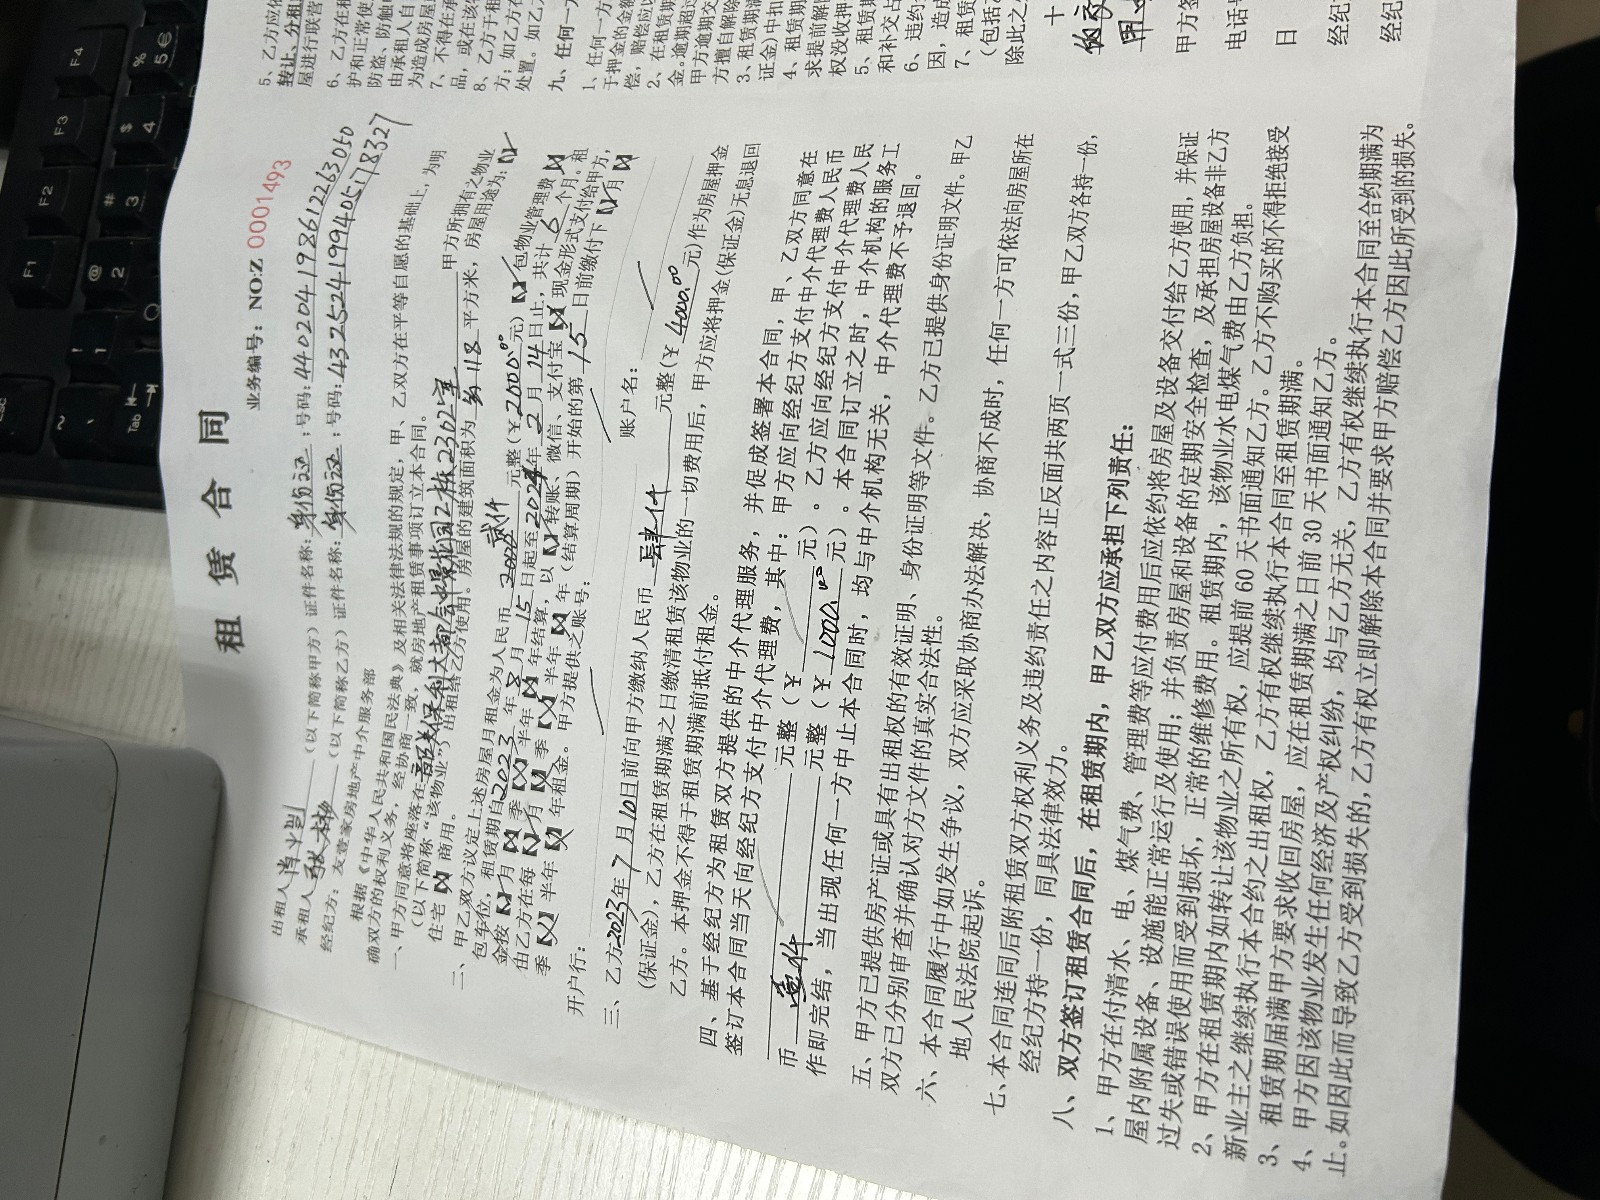 租 赁 合 同
业务编号：NO:Z 0001493
出租人（以下简称甲方）证件名称：身份证；号码：440204198612263050
承租人（以下简称乙方）证件名称：身份证；号码：432524199405178327
经纪方：友壹家房地产中介服务部
根据《中华人民共和国民法典》及相关法律法规的规定，甲、乙双方在平等自愿的基础上，为明
确双方的权利义务，经协商一致，就房地产租赁事项订立本合同。
一、甲方同意将座落在韶关保利大都会花园2栋2302室 甲方所拥有之物业
（以下简称“该物业”）出租给乙方使用。房屋的建筑面积为 约118 平方米，房屋用途为：【✓】
住宅【×】商用。
二、甲乙双方议定上述房屋月租金为人民币 贰仟 元整（￥2000.00元）【✓】包物业管理费【×】
包车位，租赁期自2023年8月15日起至2024年2月14日止，共计 6 个月。租
金按【✓】月【×】季【×】半年【×】年结算，以【✓】转账、微信、支付宝【×】现金形式支付给甲方，
由乙方在每【✓】月【×】季【×】半年【×】年（结算周期）开始的第 15 日前缴付下【✓】月【×】
季【×】半年【×】年租金。甲方提供之账号：
开户行： 账户名：
三、乙方2023年7月10日前向甲方缴纳人民币 肆仟 元整（￥4000.00元）作为房屋押金
（保证金），乙方在租赁期满之日缴清租赁该物业的一切费用后，甲方应将押金（保证金）无息退回
乙方。本押金不得于租赁期满前抵付租金。
四、基于经纪方为租赁双方提供的中介代理服务，并促成签署本合同，甲、乙双方同意在
签订本合同当天向经纪方支付中介代理费，其中：甲方应向经纪方支付中介代理费人民币
元整（￥ 元）。乙方应向经纪方支付中介代理费人民
币 壹仟 元整（￥1000.00元）。本合同订立之时，中介机构的服务工
作即完结，当出现任何一方中止本合同时，均与中介机构无关，中介代理费不予退回。
五、甲方已提供房产证或具有出租权的有效证明、身份证明等文件。乙方已提供身份证明文件。甲乙
双方已分别审查并确认对方文件的真实合法性。
六、本合同履行中如发生争议，双方应采取协商办法解决，协商不成时，任何一方可依法向房屋所在
地人民法院起诉。
七、本合同连同后附租赁双方权利义务及违约责任之内容正反面共两页一式三份，甲乙双方各持一份，
经纪方持一份，同具法律效力。
八、双方签订租赁合同后，在租赁期内，甲乙双方应承担下列责任：
1、甲方在付清水、电、煤气费、管理费等应付费用后应依约将房屋及设备交付给乙方使用，并保证
屋内附属设备、设施能正常运行及使用；并负责房屋和设备的定期安全检查，及承担房屋设备非乙方
过失或错误使用而受到损坏，正常的维修费用。租赁期内，该物业水电煤气费由乙方负担。
2、甲方在租赁期内如转让该物业之所有权，应提前 60 天书面通知乙方。乙方不购买的不得拒绝接受
新业主之继续执行本合约之出租权，乙方有权继续执行本合同至租赁期满。
3、租赁期届满甲方要求收回房屋，应在租赁期满之日前 30 天书面通知乙方。
4、甲方因该物业发生任何经济及产权纠纷，均与乙方无关，乙方有权继续执行本合同至合约期满为
止。如因此而导致乙方受到损失的，乙方有权立即解除本合同并要求甲方赔偿乙方因此所受到的损失。
5、乙方应依
转让、分租
屋进行联营
6、乙方在租
护和正常使
防盗、防触电
由承租人自
为造成房屋
7、不得在承
品，或在该物
8、乙方于租
方；如乙方在
处置。如乙方
九、任何一方
1、任何一方
于押金的金额
偿，赔偿应以
2、在租赁期
金。逾期超过
甲方逾期交
方擅自解除
3、租赁期满
证金）中扣
4、租赁期
求提前解除
权没收押金
5、租赁期
和补交占
6、违约
因，造成
7、租赁
（包括
除此之
十
甲方签
电话
日
经纪
经纪
F1
F2
F3
F4
Esc
Tab
~
! 1
@ 2
# 3
$ 4
% 5
Q